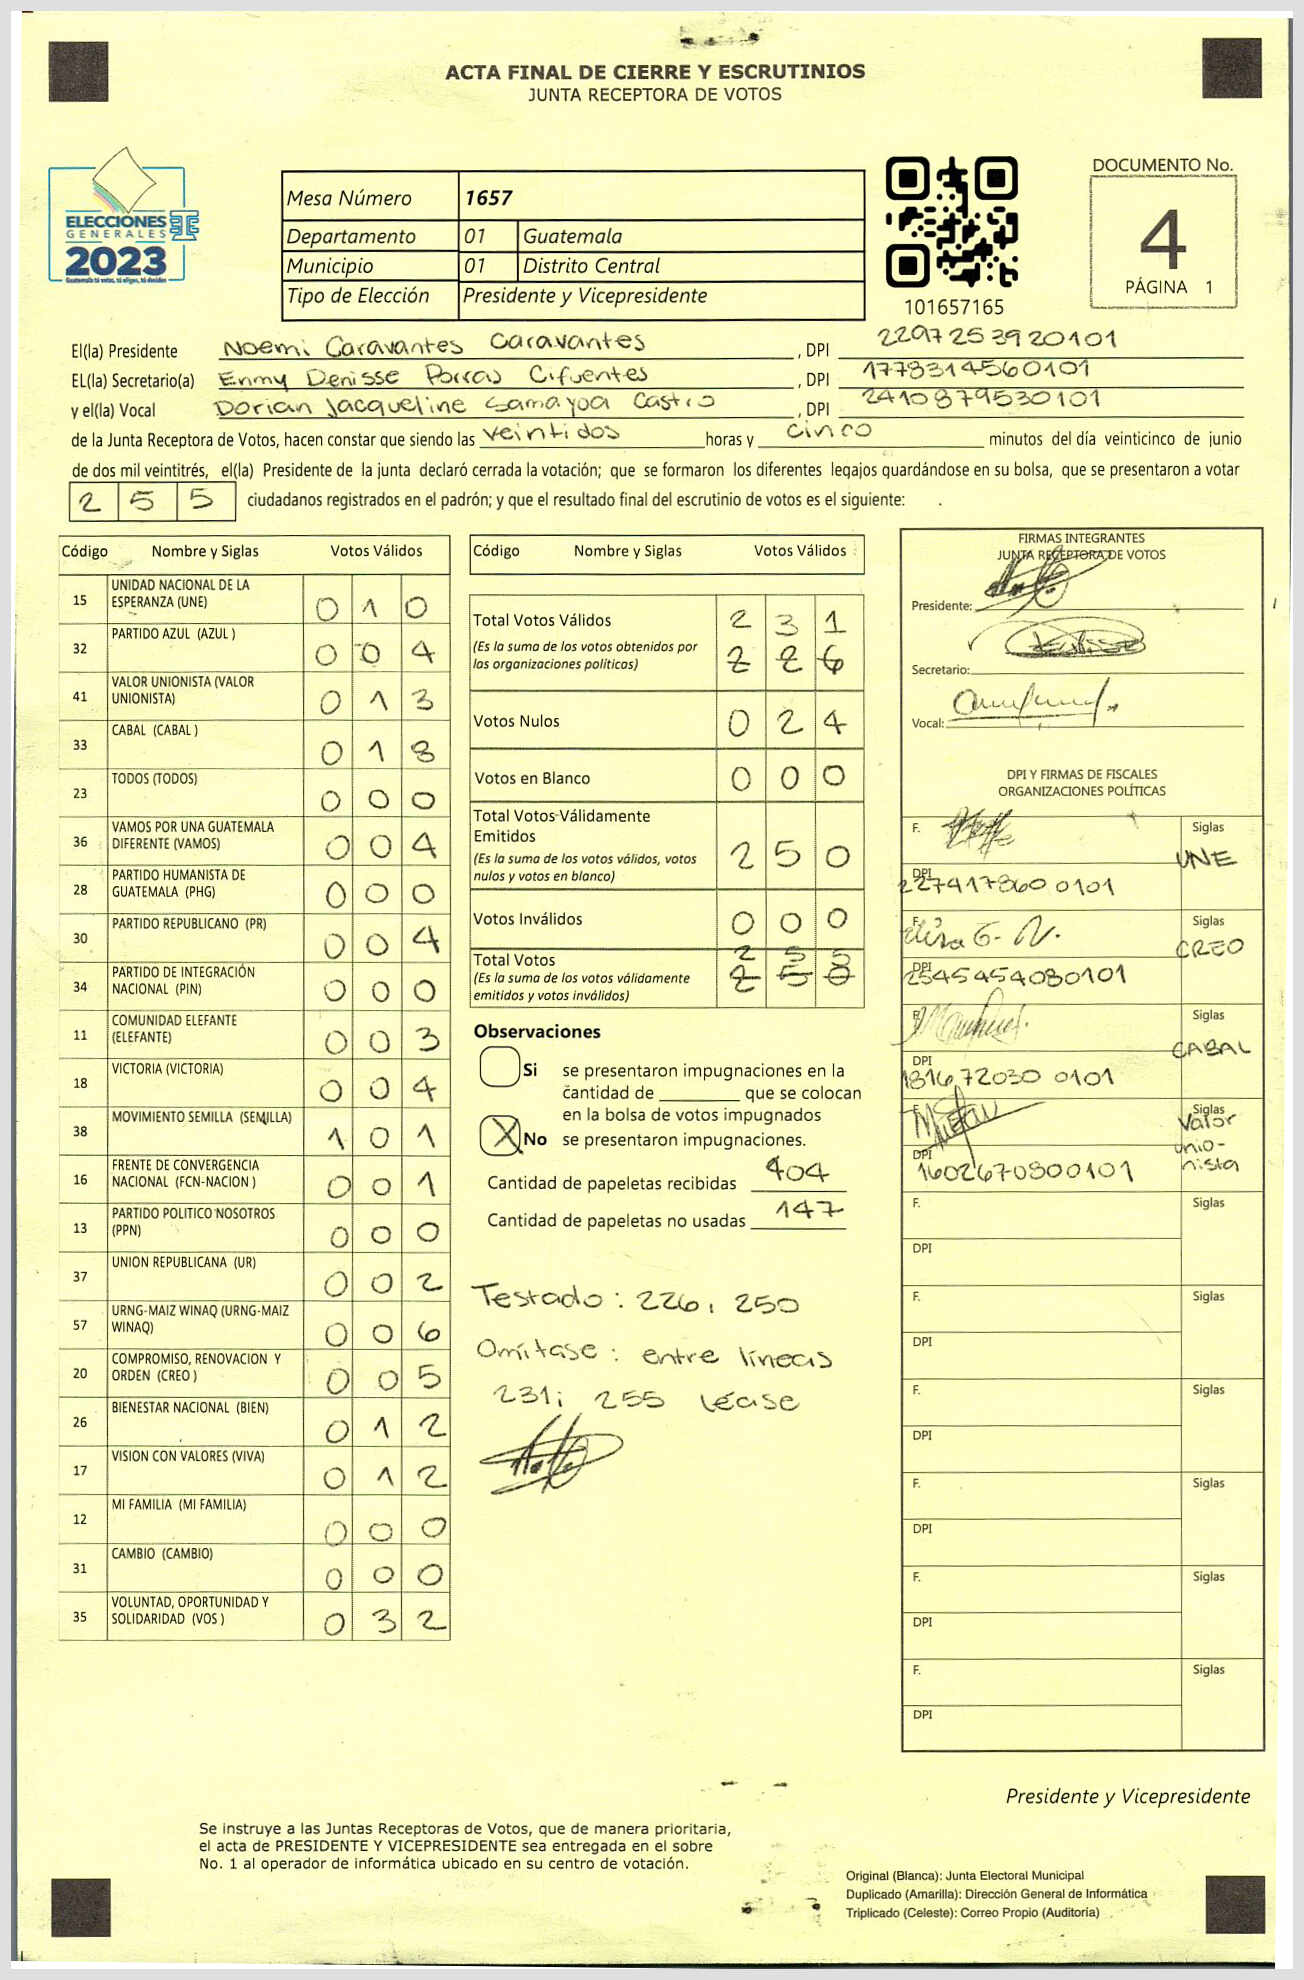 ACTA FINAL DE CIERRE Y ESCRUTINIOS
JUNTA RECEPTORA DE VOTOS
ELECCIONES
GENERALES
2023
Guatemala tú votas, tú eliges, tú decides
Mesa Número 1657
Departamento 01 Guatemala
Municipio 01 Distrito Central
Tipo de Elección Presidente y Vicepresidente
101657165
DOCUMENTO No.
4
PÁGINA 1
El(la) Presidente Noemi Caravantes Caravantes, DPI 2297253920101
EL(la) Secretario(a) Enmy Denisse Porras Cifuentes, DPI 1778314560101
y el(la) Vocal Dorian Jacqueline Samayoa Castro, DPI 2410879530101
de la Junta Receptora de Votos, hacen constar que siendo las veintidos horas y cinco minutos del día veinticinco de junio
de dos mil veintitrés, el(la) Presidente de la junta declaró cerrada la votación; que se formaron los diferentes legajos guardándose en su bolsa, que se presentaron a votar
255 ciudadanos registrados en el padrón; y que el resultado final del escrutinio de votos es el siguiente:
Código Nombre y Siglas Votos Válidos
15 UNIDAD NACIONAL DE LA ESPERANZA (UNE) 0 1 0
32 PARTIDO AZUL (AZUL ) 0 0 4
41 VALOR UNIONISTA (VALOR UNIONISTA) 0 1 3
33 CABAL (CABAL ) 0 1 8
23 TODOS (TODOS) 0 0 0
36 VAMOS POR UNA GUATEMALA DIFERENTE (VAMOS) 0 0 4
28 PARTIDO HUMANISTA DE GUATEMALA (PHG) 0 0 0
30 PARTIDO REPUBLICANO (PR) 0 0 4
34 PARTIDO DE INTEGRACIÓN NACIONAL (PIN) 0 0 0
11 COMUNIDAD ELEFANTE (ELEFANTE) 0 0 3
18 VICTORIA (VICTORIA) 0 0 4
38 MOVIMIENTO SEMILLA (SEMILLA) 1 0 1
16 FRENTE DE CONVERGENCIA NACIONAL (FCN-NACION ) 0 0 1
13 PARTIDO POLITICO NOSOTROS (PPN) 0 0 0
37 UNION REPUBLICANA (UR) 0 0 2
57 URNG-MAIZ WINAQ (URNG-MAIZ WINAQ) 0 0 6
20 COMPROMISO, RENOVACION Y ORDEN (CREO ) 0 0 5
26 BIENESTAR NACIONAL (BIEN) 0 1 2
17 VISION CON VALORES (VIVA) 0 1 2
12 MI FAMILIA (MI FAMILIA) 0 0 0
31 CAMBIO (CAMBIO) 0 0 0
35 VOLUNTAD, OPORTUNIDAD Y SOLIDARIDAD (VOS ) 0 3 2
Código Nombre y Siglas Votos Válidos
Total Votos Válidos 2 3 1
(Es la suma de los votos obtenidos por las organizaciones políticas) 2 2 6
Votos Nulos 0 2 4
Votos en Blanco 0 0 0
Total Votos Válidamente Emitidos
(Es la suma de los votos válidos, votos nulos y votos en blanco) 2 5 0
Votos Inválidos 0 0 0
Total Votos 2 5 5
(Es la suma de los votos válidamente emitidos y votos inválidos) 2 5 0
Observaciones
Si se presentaron impugnaciones en la
cantidad de ________ que se colocan
en la bolsa de votos impugnados
X No se presentaron impugnaciones.
Cantidad de papeletas recibidas 404
Cantidad de papeletas no usadas 147
Testado: 226, 250
Omítase: entre líneas
231; 255 Léase
FIRMAS INTEGRANTES
JUNTA RECEPTORA DE VOTOS
Presidente:
Secretario:
Vocal:
DPI Y FIRMAS DE FISCALES
ORGANIZACIONES POLÍTICAS
F. Siglas UNE
DPI 227417860 0101
F. Siglas CREO
DPI 2545454080101
F. Siglas CABAL
DPI 1816 72030 0101
F. Siglas Valor unio-nista
DPI 1602670800101
F. Siglas
DPI
F. Siglas
DPI
F. Siglas
DPI
F. Siglas
DPI
F. Siglas
DPI
F. Siglas
DPI
Presidente y Vicepresidente
Se instruye a las Juntas Receptoras de Votos, que de manera prioritaria,
el acta de PRESIDENTE Y VICEPRESIDENTE sea entregada en el sobre
No. 1 al operador de informática ubicado en su centro de votación.
Original (Blanca): Junta Electoral Municipal
Duplicado (Amarilla): Dirección General de Informática
Triplicado (Celeste): Correo Propio (Auditoría)